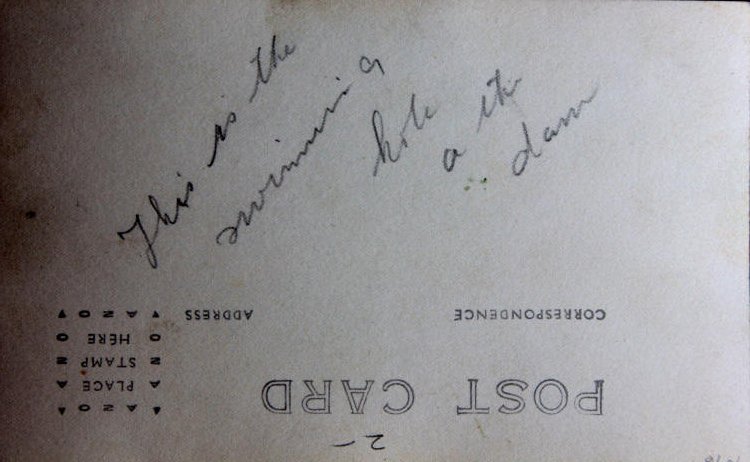 This is the
swimming
hole
a th
dam
CORRESPONDENCE ADDRESS
POST CARD
AZO
PLACE
STAMP
HERE
AZO
2-